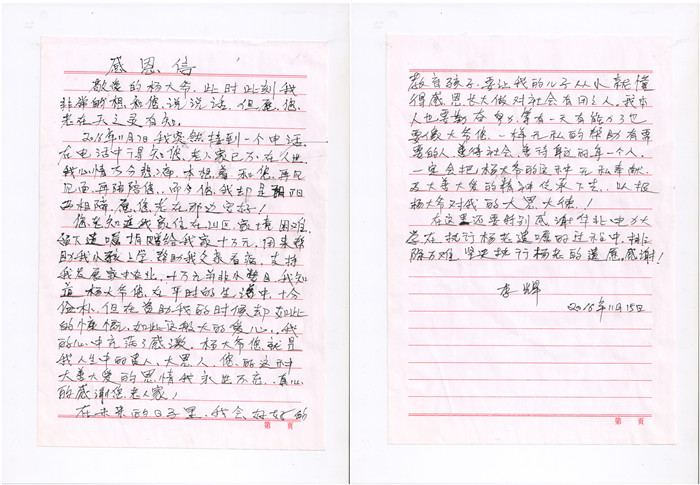 感恩信
敬爱的杨大爷,此时此刻我
非常的想和您说说话,但愿您
老在天之灵有知。
2016年11月7日我突然接到一个电话
在电话中得知您老人家已不在人世
我心情十分悲痛,本想着和您再见
见面,再陪陪您,而今您我却是阴阳
两相隔,愿您老在那边安好!
您老知道我家住在山区,家境困难,
留下遗嘱捐赠给我家十万元,用来帮
助我小孩上学,帮助我父亲看病,支持
我发展农业,十万元并非小数目,我知
道杨大爷您在平时的生活中,十分
俭朴,但在资助我的时候却如此
的慷慨,如此这般大的爱心,我
的心中充满了感激。杨大爷您就是
我人生中的贵人、大恩人,您的这种
大善大爱的恩情我永世不忘,真心
的感谢您老人家!
在未来的日子里,我会好好的
教育孩子,要让我的儿子从小就懂
得感恩长大做对社会有用之人,我本
人也要勤奋努力,等有一天有能力了也
要像大爷您一样无私的帮助有需
要的人,善待社会,善待身边的每一个人,
一定会把杨大爷的这种无私奉献、
大善大爱的精神传承下去,以报
杨大爷对我的大恩大德!
在这里还要特别感谢华北电力大
学在执行杨老遗愿的过程中,排
除万难,坚决执行杨老的遗愿,感谢!
李辉
2016年11月15日
第 页
第 页